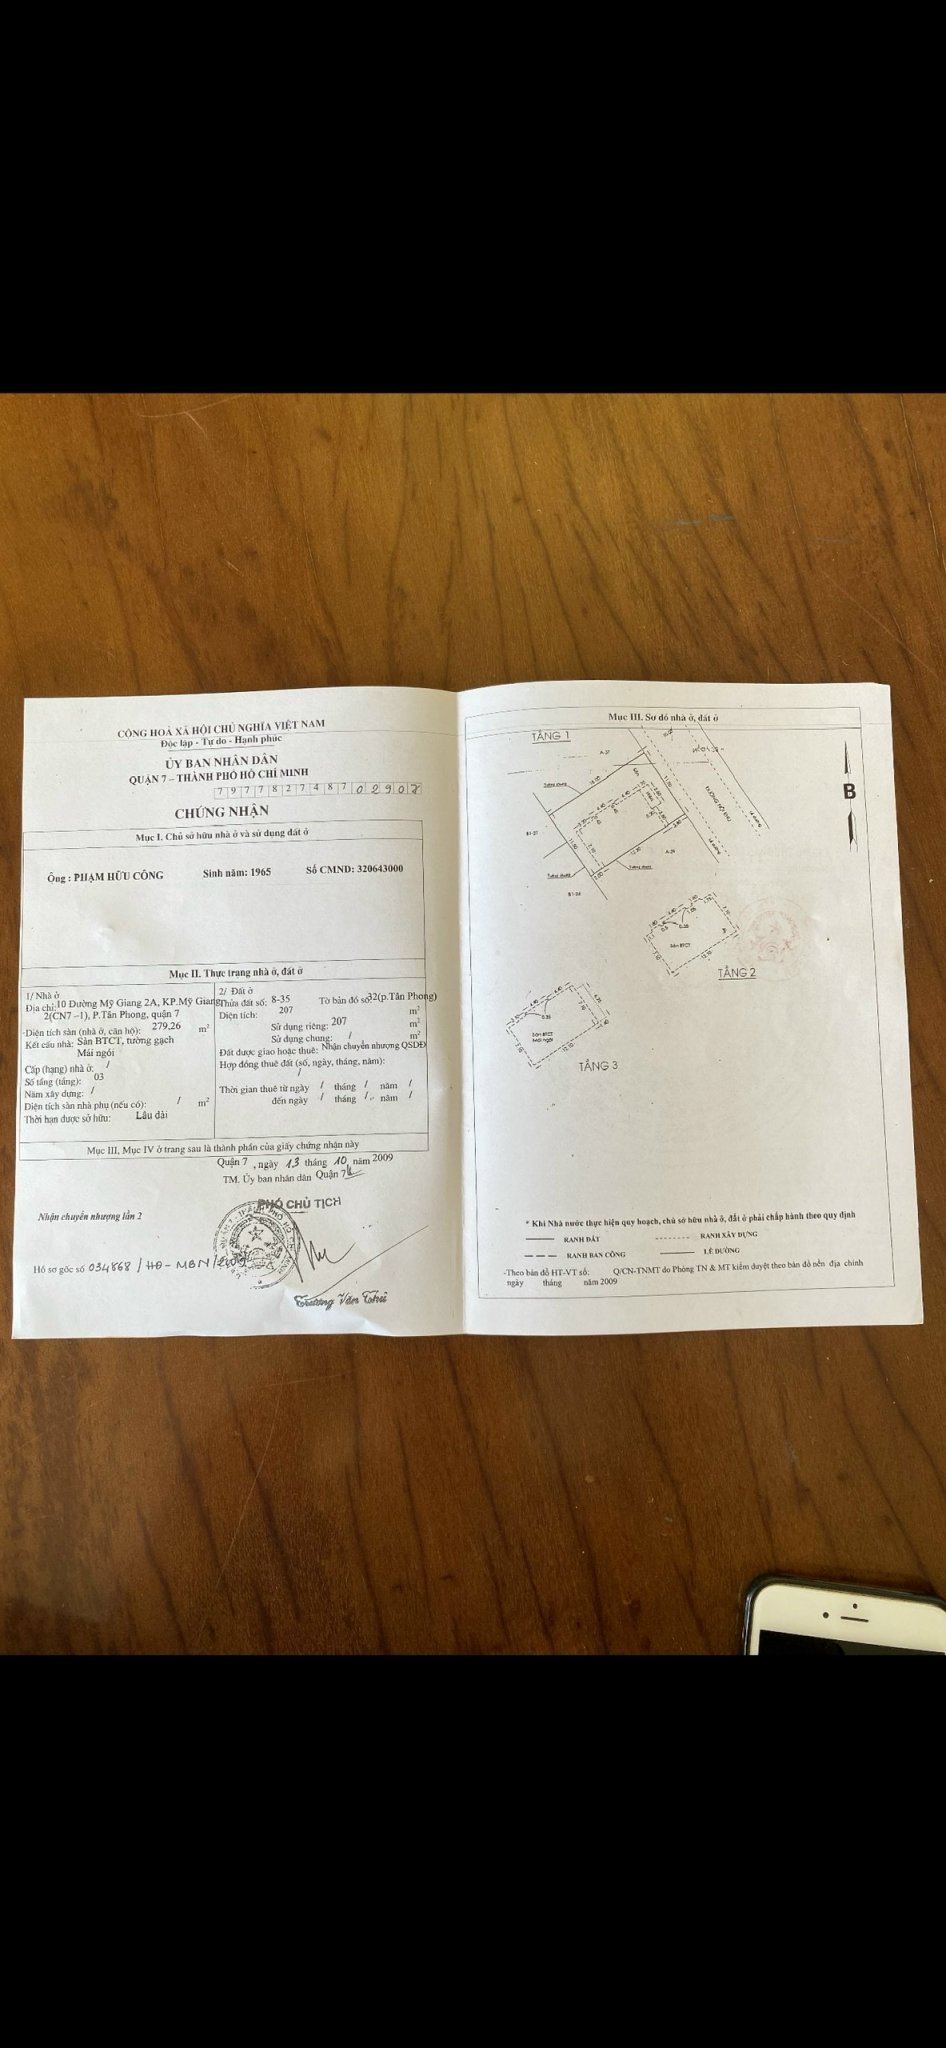 CỘNG HOÀ XÃ HỘI CHỦ NGHĨA VIỆT NAM
Độc lập - Tự do - Hạnh phúc
ỦY BAN NHÂN DÂN
QUẬN 7 – THÀNH PHỐ HỒ CHÍ MINH
797782748702907
CHỨNG NHẬN
Mục I. Chủ sở hữu nhà ở và sử dụng đất ở
Ông : PHẠM HỮU CÔNG Sinh năm: 1965 Số CMND: 320643000
Mục II. Thực trạng nhà ở, đất ở
1/ Nhà ở
Địa chỉ:10 Đường Mỹ Giang 2A, KP.Mỹ Giang
2(CN7 –1), P.Tân Phong, quận 7
-Diện tích sàn (nhà ở, căn hộ): 279,26 m2
Kết cấu nhà: Sàn BTCT, tường gạch
Mái ngói
Cấp (hạng) nhà ở: /
Số tầng (tầng): 03
Năm xây dựng: /
Diện tích sàn nhà phụ (nếu có): / m2
Thời hạn được sở hữu: Lâu dài
2/ Đất ở
Thửa đất số: 8-35 Tờ bản đồ số:32(p.Tân Phong)
Diện tích: 207 m2
Sử dụng riêng: 207 m2
Sử dụng chung: / m2
Đất được giao hoặc thuê: Nhận chuyển nhượng QSDĐ
Hợp đồng thuê đất (số, ngày, tháng, năm):
/
Thời gian thuê từ ngày / tháng / năm /
đến ngày / tháng / năm /
Mục III, Mục IV ở trang sau là thành phần của giấy chứng nhận này
Quận 7 , ngày 13 tháng 10 năm 2009
TM. Ủy ban nhân dân Quận 7
PHÓ CHỦ TỊCH
Nhận chuyển nhượng lần 2
Hồ sơ gốc số 034868 / HĐ - MBN /
Trương Văn Thủ
Mục III. Sơ đồ nhà ở, đất ở
TẦNG 1
B
ĐƯỜNG NỘI KHU
Tường chung
Tường chung
Tường chung
A-37
TẦNG 2
Sàn BTCT
TẦNG 3
Sàn BTCT
Mái ngói
* Khi Nhà nước thực hiện quy hoạch, chủ sở hữu nhà ở, đất ở phải chấp hành theo quy định
RANH ĐẤT RANH XÂY DỰNG
RANH BAN CÔNG LỀ ĐƯỜNG
-Theo bản đồ HT-VT số: Q/CN-TNMT do Phòng TN & MT kiểm duyệt theo bản đồ nền địa chính
ngày tháng năm 2009